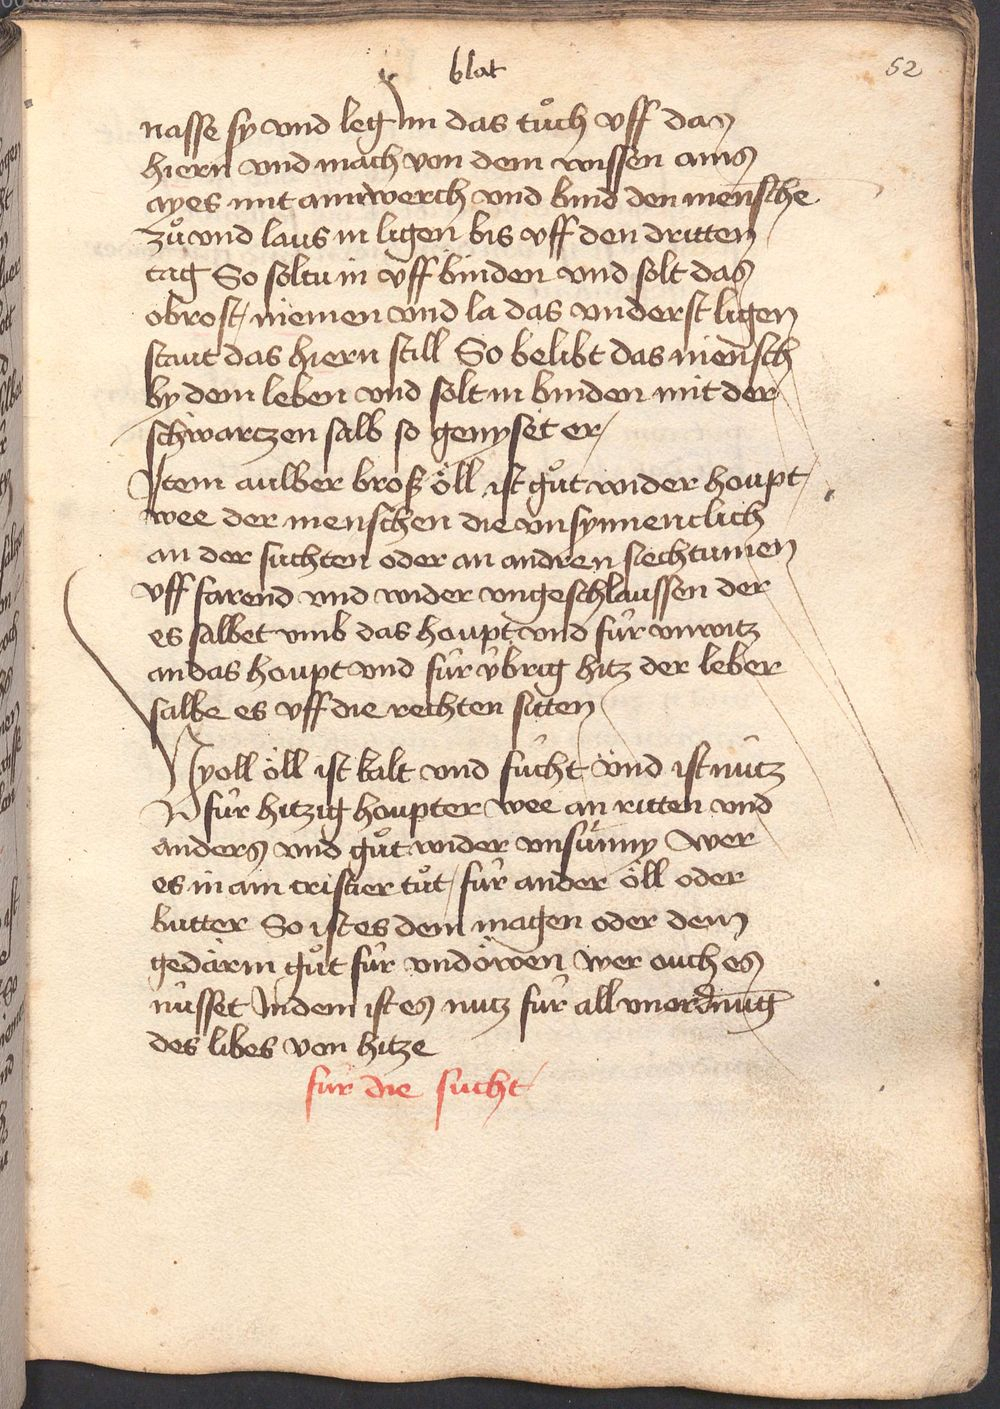 blat
52
nasse sy vnd leg im das tuͦch vff das
hiern vnd mach von dem wissen ains
ayes mit ainwerch vnd bind den mensche
zuͦ vnd laus in ligen bis vff den dritten
tag So soltu in vff binden vnd solt das
obrost niemen vnd la das vnderst ligen
staut das hiern still So belibt das mensch
by dem leben vnd solt in binden mit der
schwartzen salb so genyset er
Item aulber bross öll ist guͦt wider houpt
wee der menschen die vnsynnenclich
an der suchten oder an andren siechtumen
vff farend vnd wider vngeschlaussen der
es salbet vmb das houpt vnd für vnwitz
an das houpt vnd für übrig hitz der leber
salbe es vff die rechten sitten
Vyoll öll ist kalt vnd fücht vnd ist nütz
für hitzig houpter wee an ritten vnd
anders vnd guͦt wider vnsünny Wer
es in ain cristier tuͦt für ander öll oder
butter So ist es dem magen oder dem
gedärm guͦt für vndöwen wer ouch es
nüsset Indem ist es nutz für all vnordnung
des libes von hitze
für die sucht